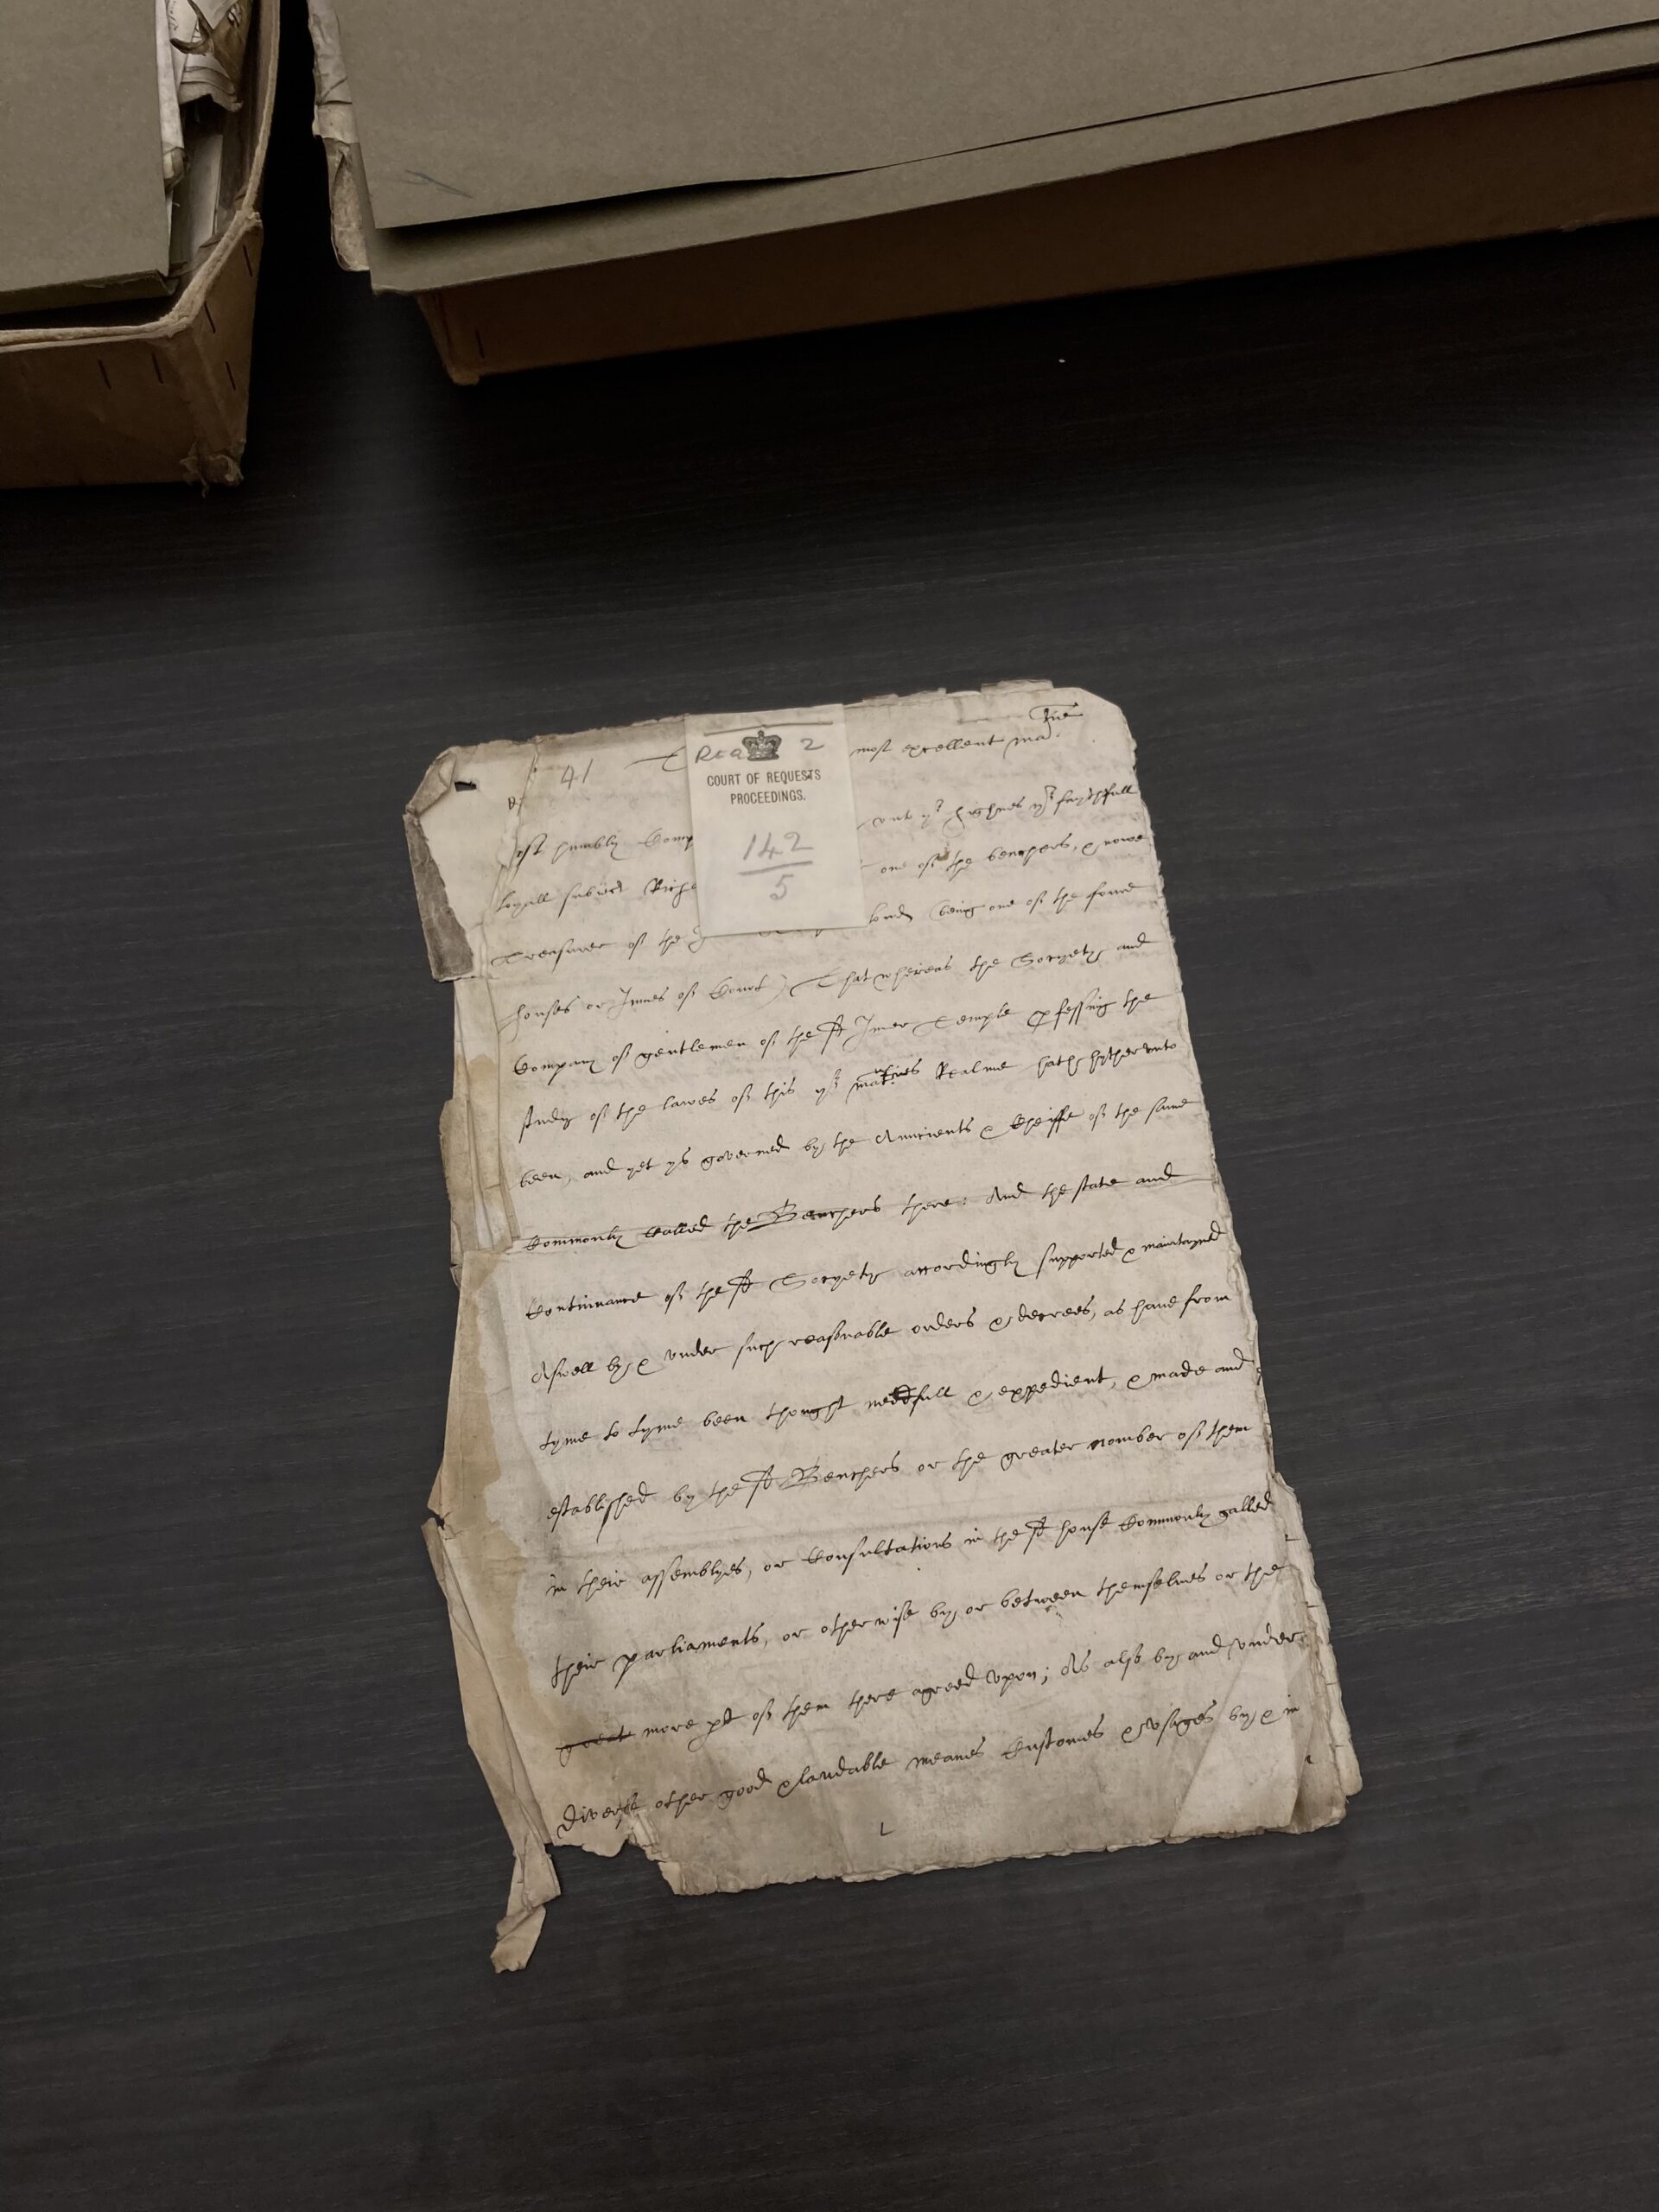 Req 2
COURT OF REQUESTS
PROCEEDINGS.
142
5
41
most excellent ma.tie
ost humbly Comp vnto yr highnes yr faythfull
loyall subiect Riche one of the benchers, & nowe
Treasurer of the London being one of the fowre
houses or Innes of Court) That whereas the Socyety and
Company of gentlemen of the sd Inner Temple pfessing the
study of the lawes of this yor maties Realme hath hytherunto
been, and yet ys governed by the Auncients & Cheiffe of the same
Commonly Called the Benchers there: And the state and
Continuance of the sd Socyety accordingly supported & maintayned
Aswell by & vnder such reasonable orders & decrees, as haue from
tyme to tyme been thought needfull & expedient, & made and
established by the sd Benchers or the greater nomber of them
in their assemblyes, or Consultations in the sd house Commonly called
their parliaments, or otherwise by or between themselues or the
great more pt of them there agreed vpon; As also by and vnder
diverse other good & laudable meanes Customes & vsages by & in